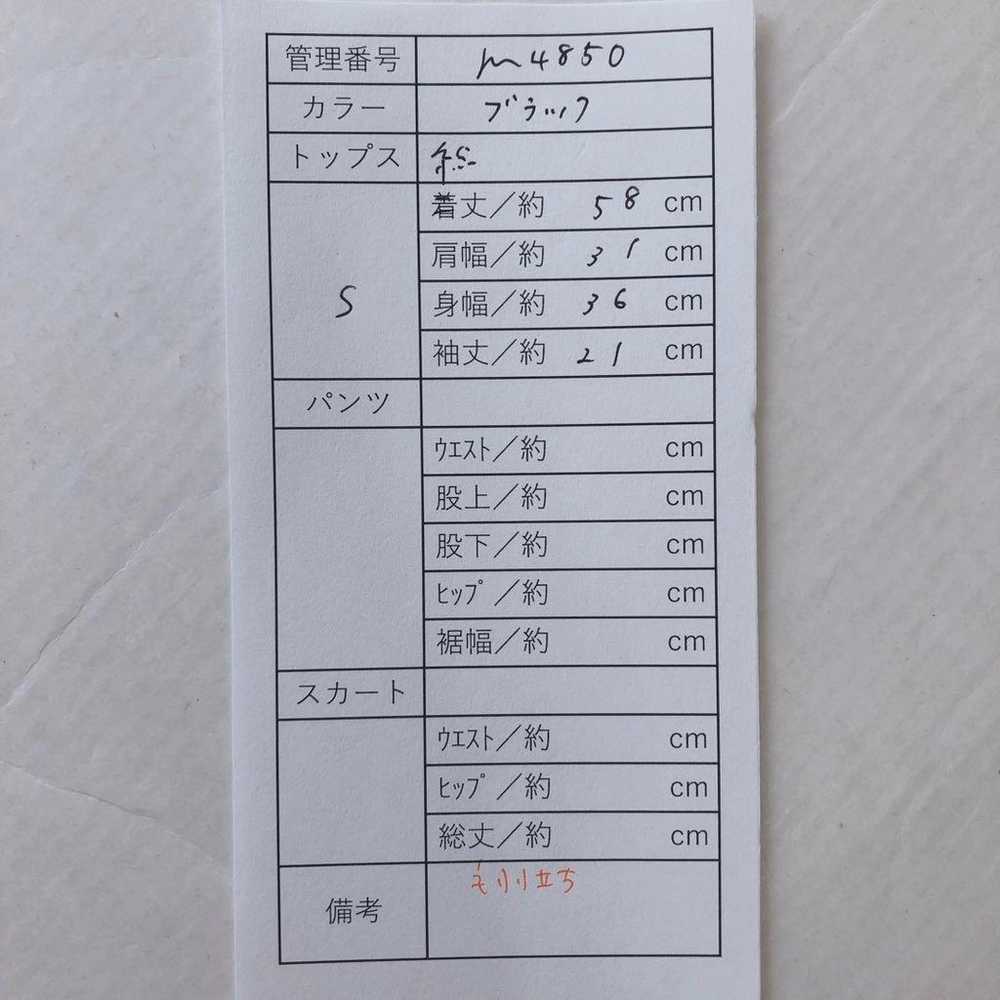 管理番号 m4850
カラー ブラック
トップス
S
着丈／約 58 cm
肩幅／約 31 cm
身幅／約 36 cm
袖丈／約 21 cm
パンツ
ｳｴｽﾄ／約 cm
股上／約 cm
股下／約 cm
ﾋｯﾌﾟ／約 cm
裾幅／約 cm
スカート
ｳｴｽﾄ／約 cm
ﾋｯﾌﾟ／約 cm
総丈／約 cm
備考 毛羽立ち